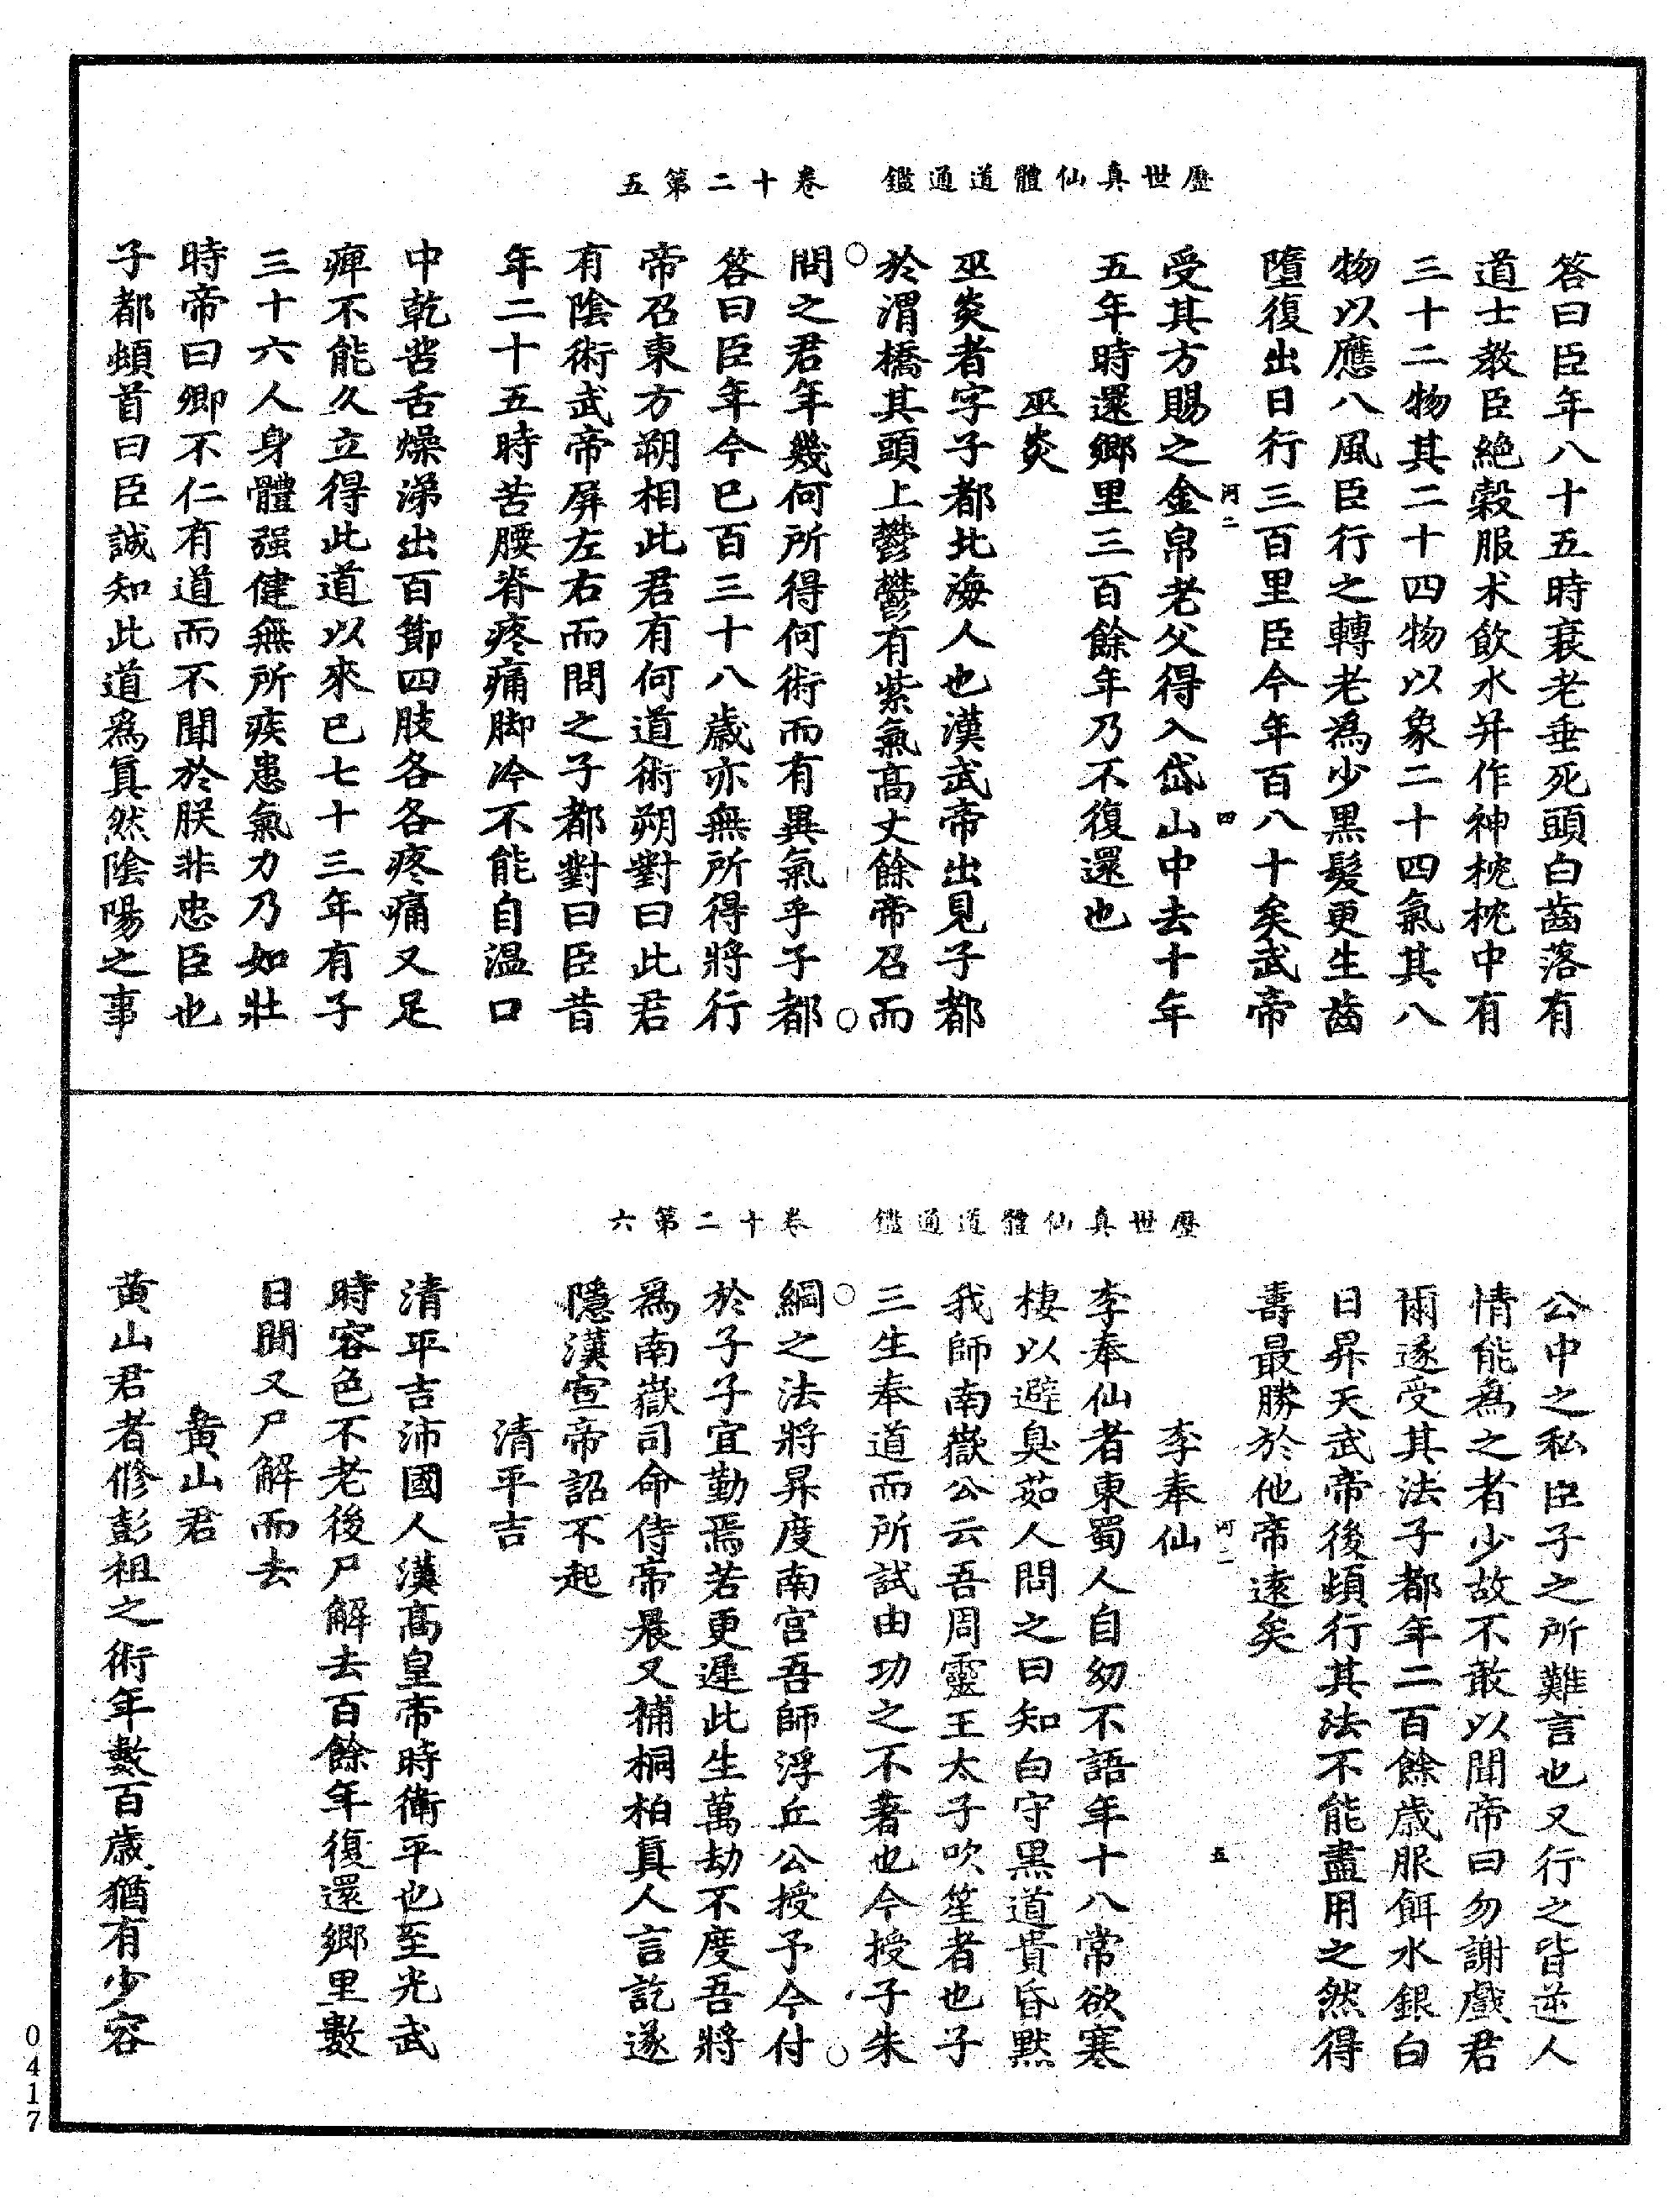 歷世真仙體道通鑑　卷十二第五
答曰臣年八十五時衰老垂死頭白齒落有
道士教臣絕穀服朮飲水并作神枕枕中有
三十二物其二十四物以象二十四氣其八
物以應八風臣行之轉老為少黑髮更生齒
墮復出日行三百里臣今年百八十矣武帝
河二　四
受其方賜之金帛老父得入岱山中去十年
五年時還鄉里三百餘年乃不復還也
巫炎
巫炎者字子都北海人也漢武帝出見子都
於渭橋其頭上鬱鬱有紫氣高丈餘帝召而
問之君年幾何所得何術而有異氣乎子都
答曰臣年今巳百三十八歲亦無所得將行
帝召東方朔相此君有何道術朔對曰此君
有陰術武帝屏左右而問之子都對曰臣昔
年二十五時苦腰脊疼痛脚冷不能自温口
中乾苦舌燥涕出百節四肢各各疼痛又足
痺不能久立得此道以來巳七十三年有子
三十六人身體强健無所疾患氣力乃如壯
時帝曰卿不仁有道而不聞於朕非忠臣也
子都頓首曰臣誠知此道為真然陰陽之事
歷世真仙體道通鑑　卷十二第六
公中之私臣子之所難言也又行之皆逆人
情能為之者少故不敢以聞帝曰勿謝戲君
爾遂受其法子都年二百餘歲服餌水銀白
日昇天武帝後頗行其法不能盡用之然得
壽最勝於他帝遠矣
河二　五
李奉仙
李奉仙者東蜀人自幼不語年十八常欲寒
棲以避臭茹人問之曰知白守黑道貴昏默
我師南嶽公云吾周靈王太子吹笙者也子
三生奉道而所試由功之不著也今授子朱
綱之法將昇度南宮吾師浮丘公授予今付
於子子宜勤焉若更遲此生萬劫不度吾將
為南嶽司命侍帝晨又補桐柏真人言訖遂
隱漢宣帝詔不起
清平吉
清平吉沛國人漢高皇帝時衛平也至光武
時容色不老後尸解去百餘年復還鄉里數
日間又尸解而去
黃山君
黃山君者修彭祖之術年數百歲猶有少容
0417